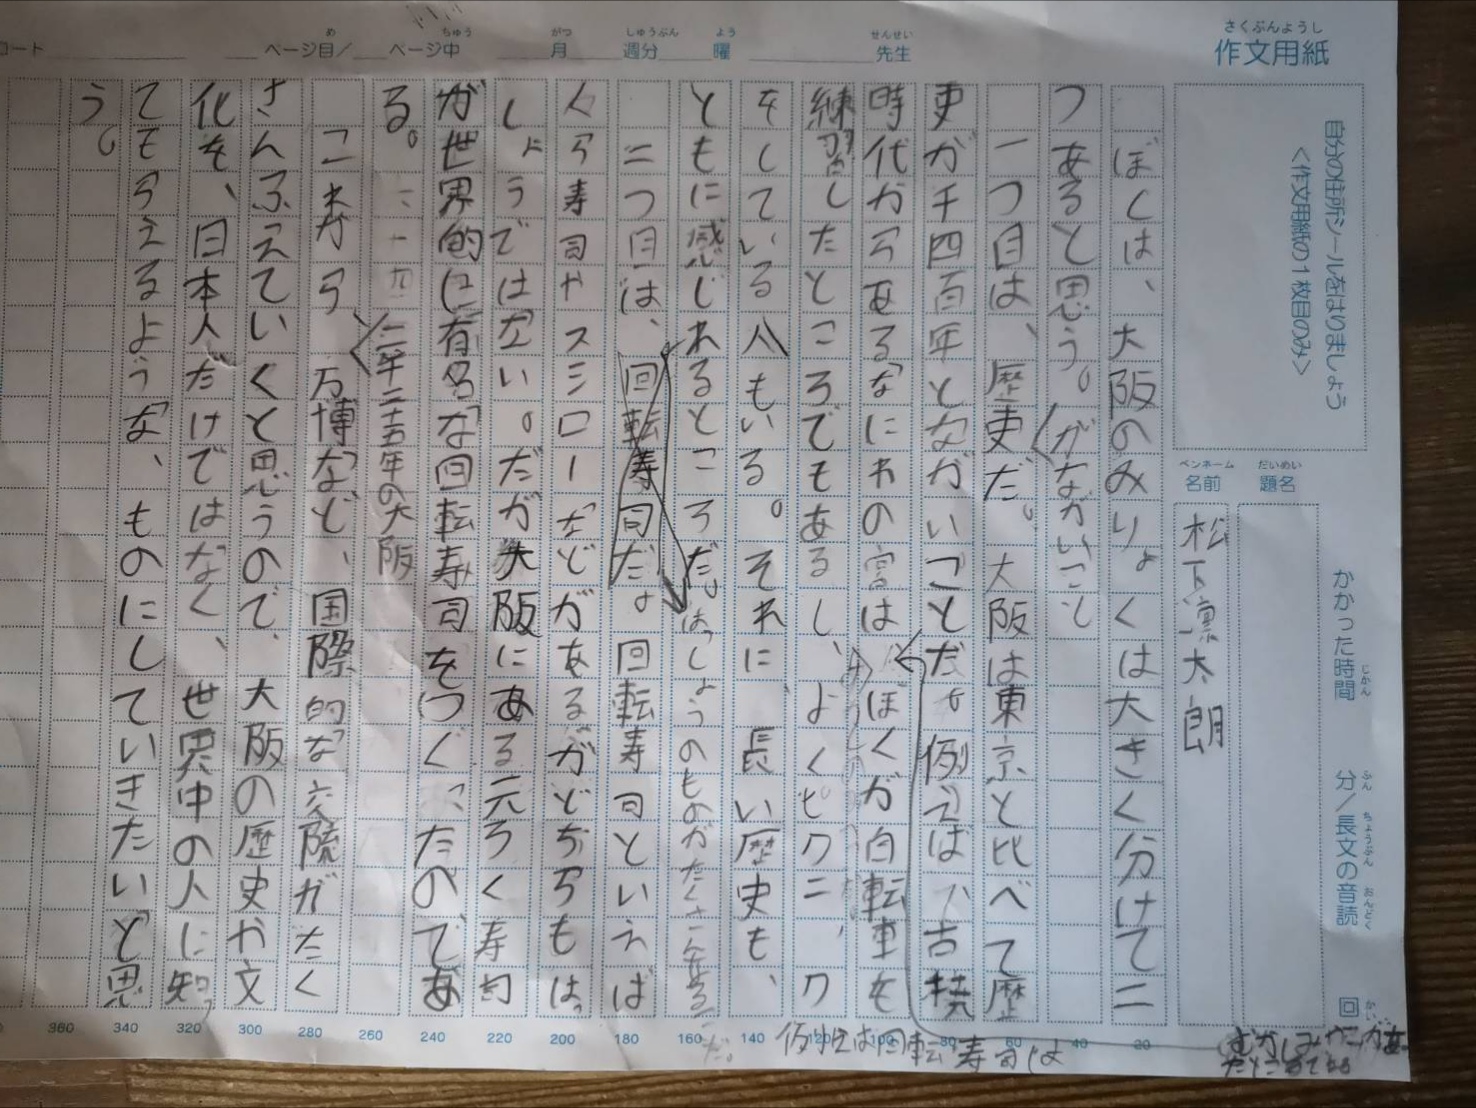 さくぶんようし
作文用紙
コード
ページ目/
め
ページ中
ちゅう
月
がつ
週分
しゅうぶん
曜
よう
先生
せんせい
自分の住所シールをはりましょう
<作文用紙の1枚目のみ>
題名
だいめい
名前
ペンネーム
松下凛太朗
かかった時間
じかん
分/長文の音読
ふん
ちょうぶん
おんどく
回
かい
ぼくは、大阪のみりょくは大きく分けて二
つあると思う。
がながいこと
一つ目は、歴史だ。大阪は東京と比べて歴
史が千四百年とながいことだ。例えば
時代からあるなにわの宮は
ぼくが自転車を
練習したところでもあるし、よくピクニック
をしている人もいる。それに、長い歴史も、
ともに感じれるところだ。
はっしょうのものがたくさんある
二つ目は、回転寿司だ。回転寿司といえば
くら寿司やスシローなどがあるがどちらもはっ
しょうではない。だが大阪にある元ろく寿司
が世界的に有名な回転寿司をつくったのであ
る。
二千二十五年の大阪
これから、万博など、国際的な交流がたく
さんふえていくと思うので、大阪の歴史や文
化を、日本人だけではなく、世界中の人に知っ
てもらえるような、ものにしていきたいと思
う。
例えば回転寿司しょ
20
40
60
80
100
120
140
160
180
200
220
240
260
280
300
320
340
360